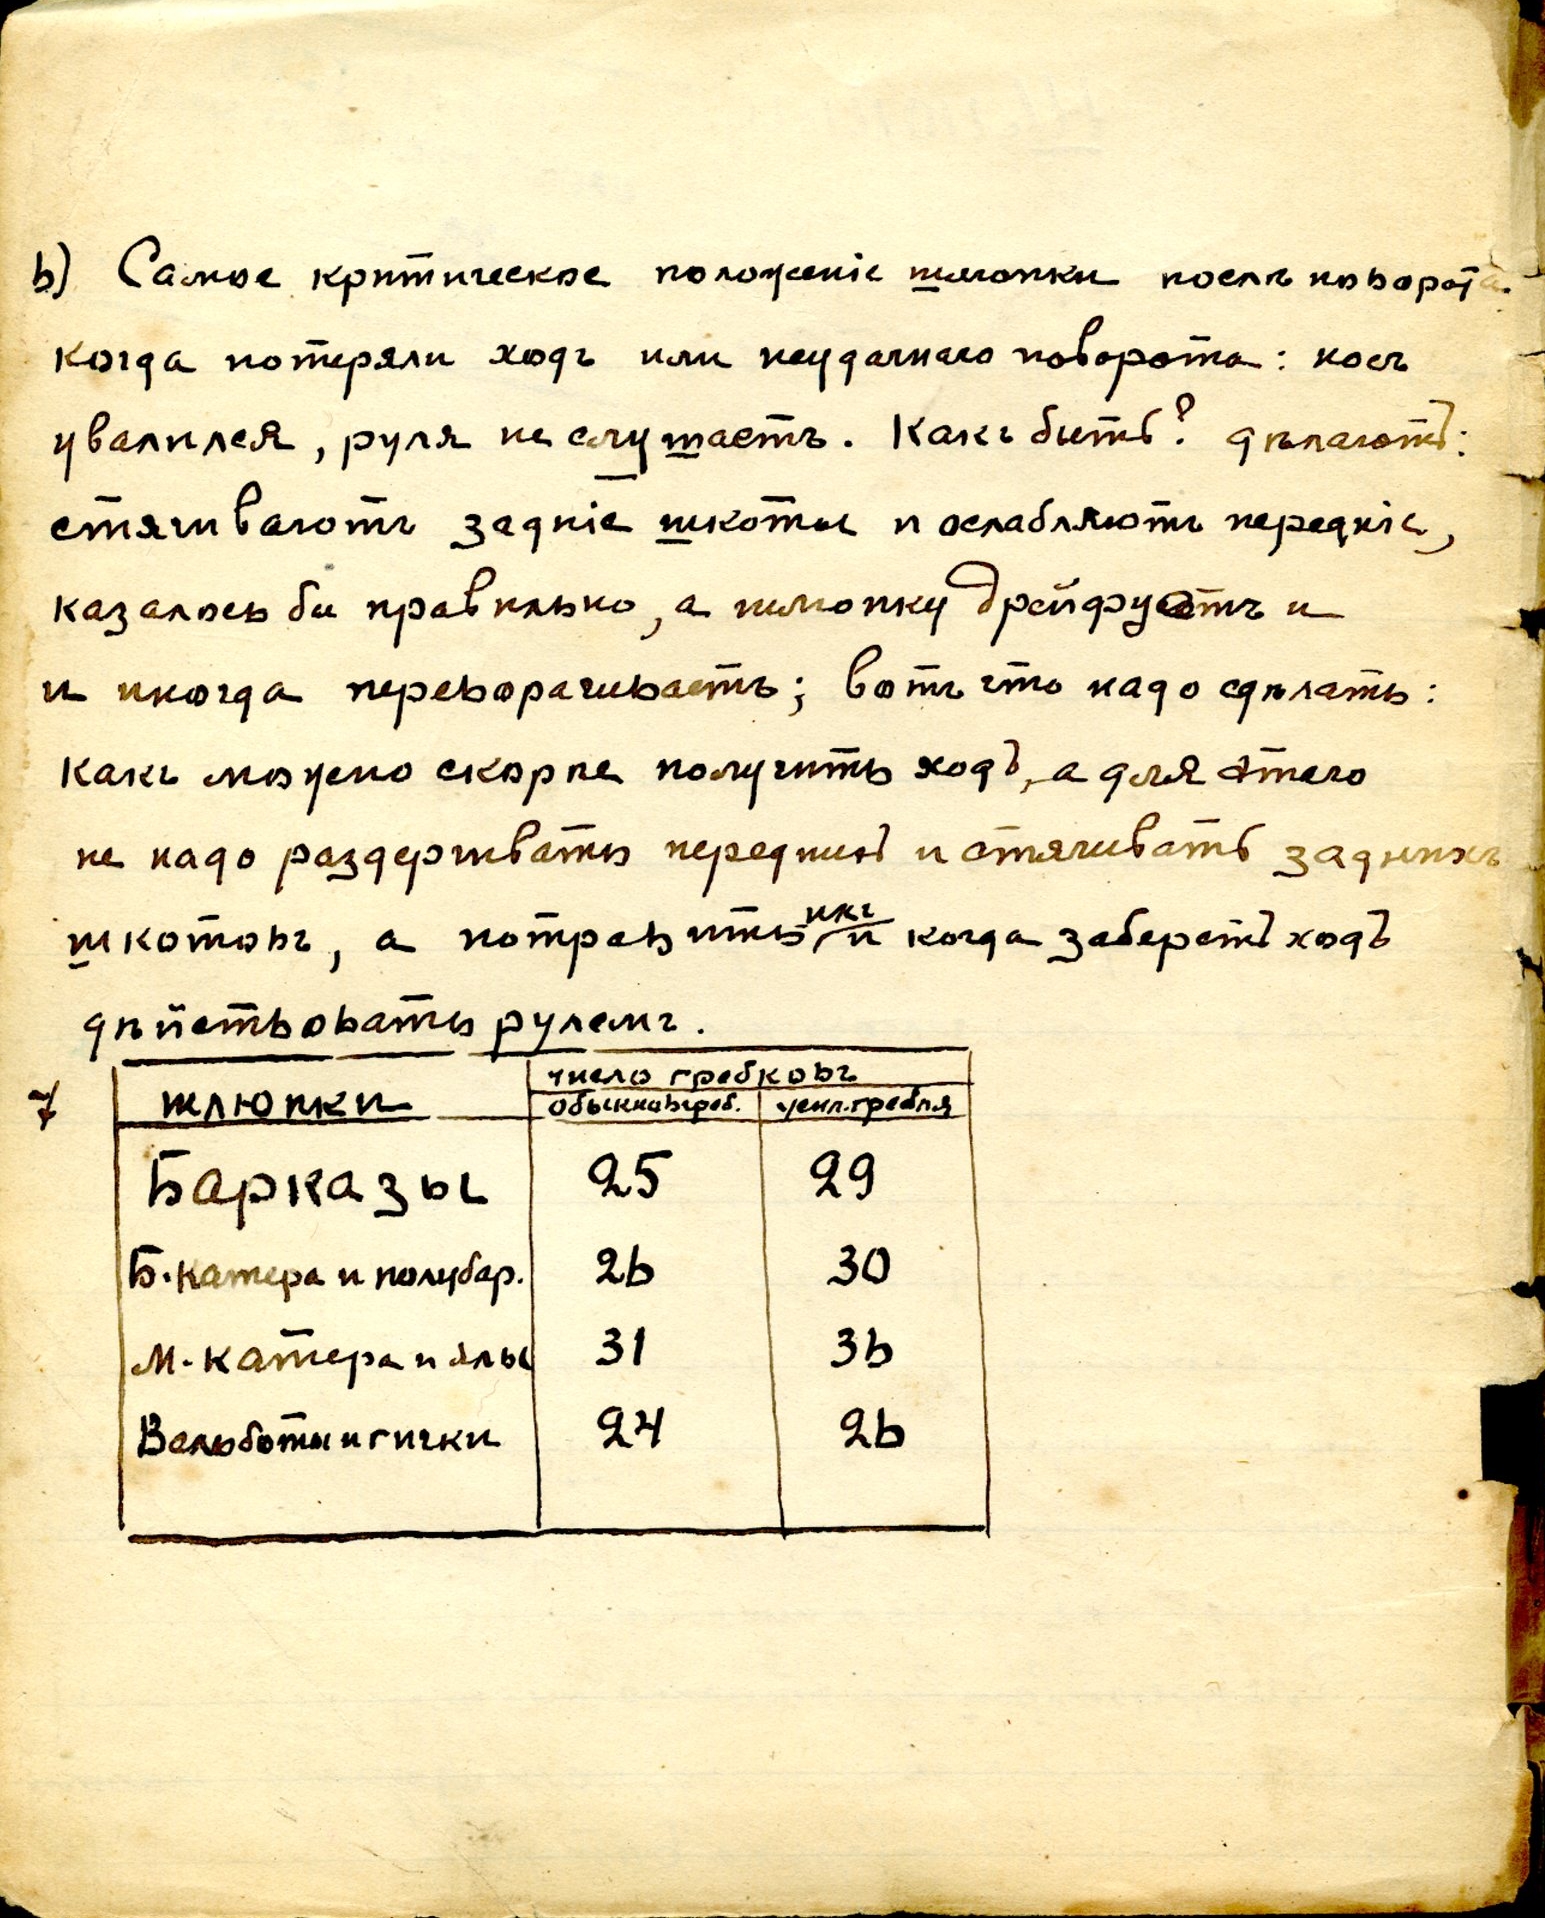 6) Самое критическое положеніе шлюпки послѣ поворота
когда потеряли ходъ или неудачнаго поворота: носъ
увалился, руля не слушаетъ. Какъ быть? дѣлаютъ:
стягиваютъ задніе шкоты и ослабляютъ передніе,
казалось бы правильно, а шлюпку дрейфуетъ и
и иногда переворачиваетъ; вотъ что надо сдѣлать:
какъ можно скорѣе получить ходъ, а для этаго
не надо раздергивать передній и стягивать заднихъ
шкотовъ, а потравить ихъ и когда заберетъ ходъ
дѣйствовать рулемъ.
7 шлюпки число гребковъ
обыкнов. греб. усил. гребля
Барказы 25 29
Б. катера и полубар. 26 30
М. катера и ялы 31 36
Вельботы и гички 24 26